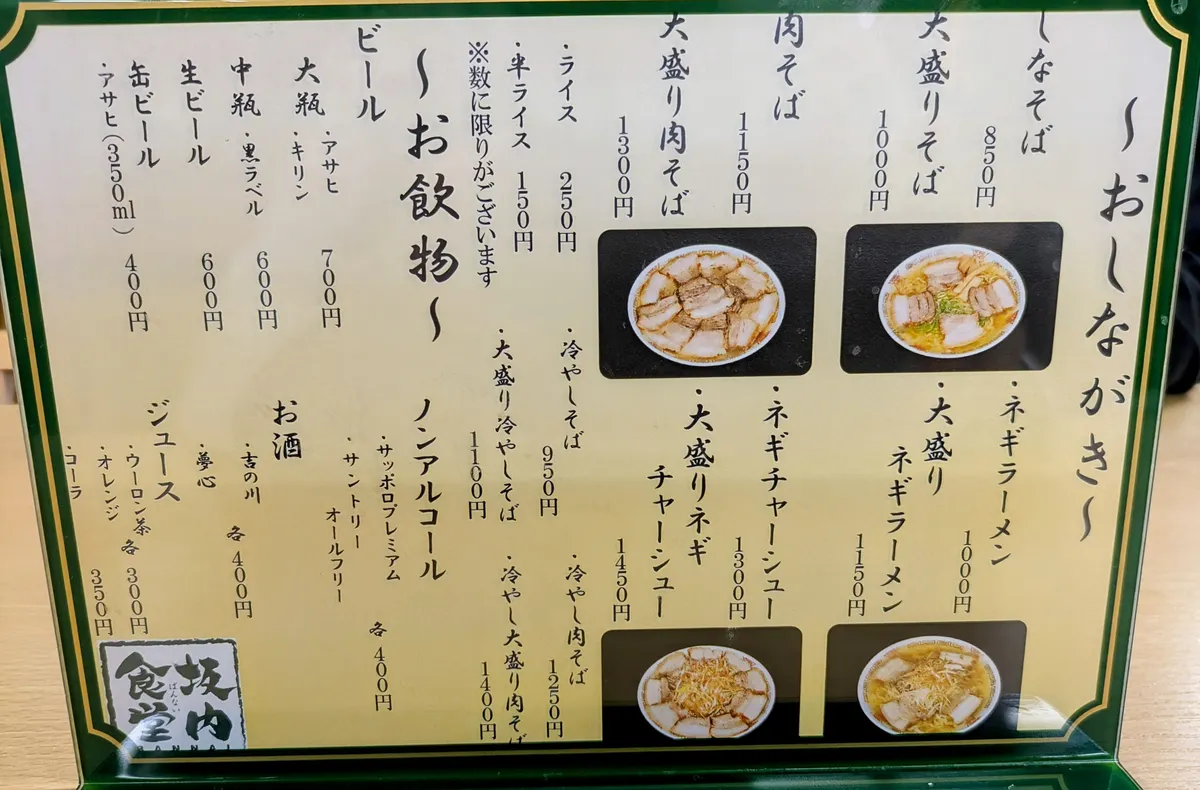 ～おしながき～
しなそば
850円
大盛りそば
1000円
肉そば
1150円
大盛り肉そば
1300円
・ネギラーメン
1000円
・大盛り
ネギラーメン
1150円
・ネギチャーシュー
1300円
・大盛りネギ
チャーシュー
1450円
・ライス 250円
・半ライス 150円
※数に限りがございます
・冷やしそば
950円
・大盛り冷やしそば
1100円
・冷やし肉そば
1250円
・冷やし大盛り肉そば
1400円
～お飲物～
ビール
大瓶 ・アサヒ
・キリン
700円
中瓶 ・黒ラベル 600円
生ビール 600円
缶ビール
・アサヒ(350ml) 400円
ノンアルコール
・サッポロプレミアム
・サントリー
オールフリー
各 400円
お酒
・吉の川
・夢心
各 400円
ジュース
・ウーロン茶
・オレンジ
各 300円
・コーラ
350円
坂内
ばんない
食堂
BANNAI